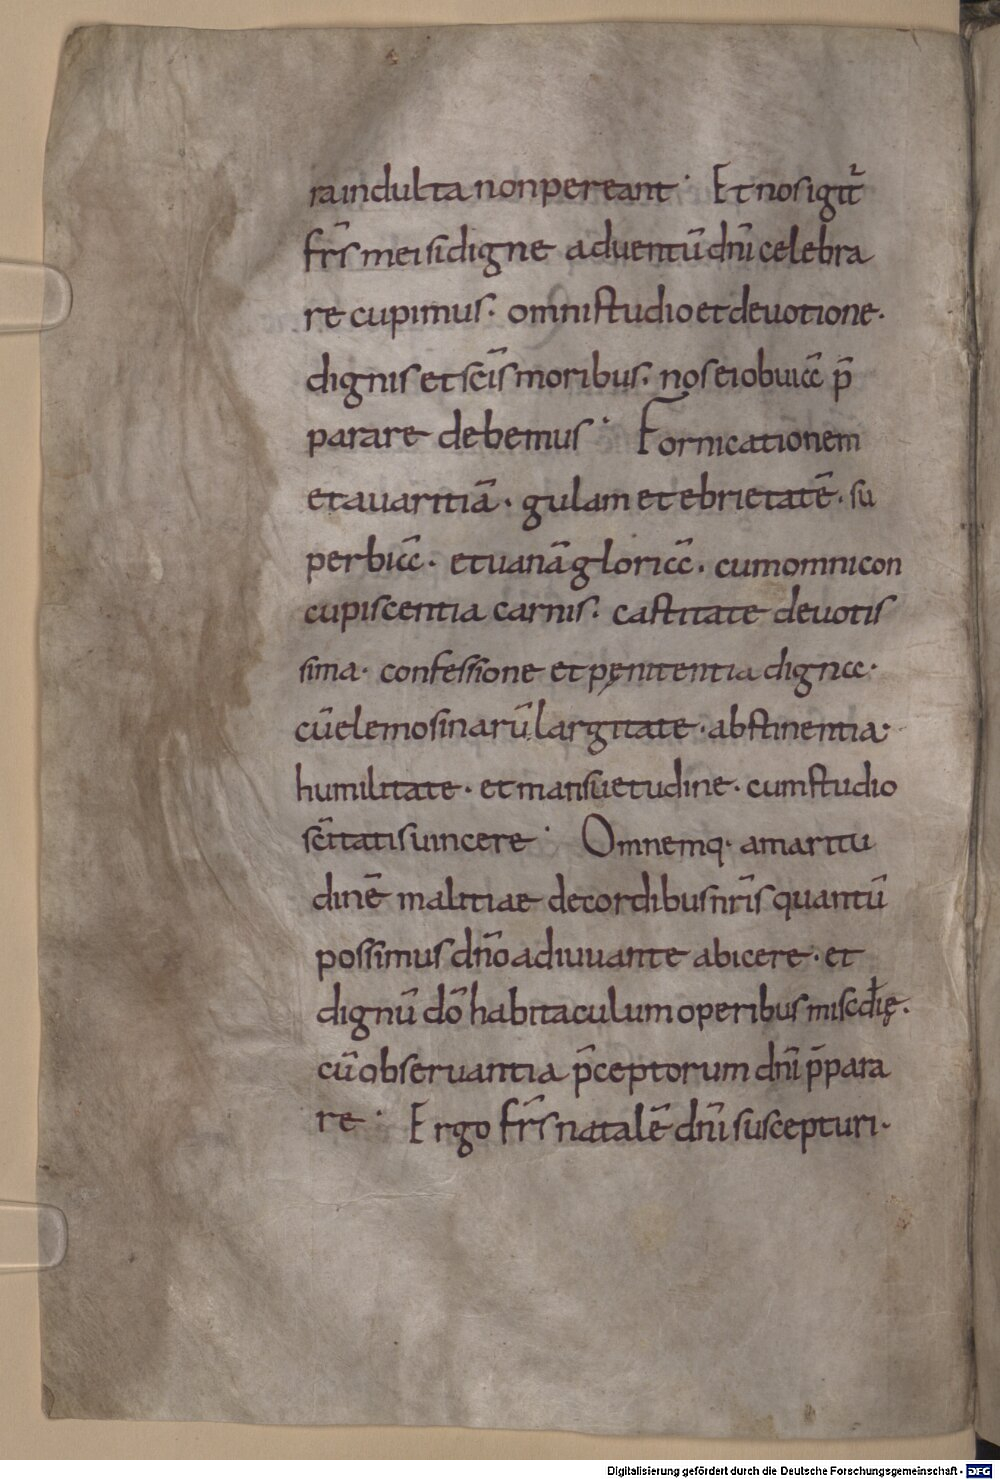 ra indulta non pereant· Et nos igit̄
fr̄s mei si digne adventū dn̄i celebra
re cupimus· omni studio et devotione·
dignis et sc̄is moribus· nos ei obuiā p̄
parare debemus· Fornicationem
et avaritiā· gulam et ebrietatē· su
perbiā· et uanā gloriā· cum omni con
cupiscentia carnis· castitate devotis
sima· confessione et pęnitentia digna·
cū elemosinarū largitate· abstinentia·
humilitate· et mansuetudine· cum studio
sc̄itatis uincere· Omnemq· amaritu
dinē malitiae de cordibus nr̄is quantū
possimus dn̄o adiuvante abicere· et
dignū dō habitaculum operibus miscđię·
cū observantia p̄ceptorum dn̄i p̄para
re· Ergo fr̄s natalē dn̄i suscepturi·
Digitalisierung gefördert durch die Deutsche Forschungsgemeinschaft - DFG